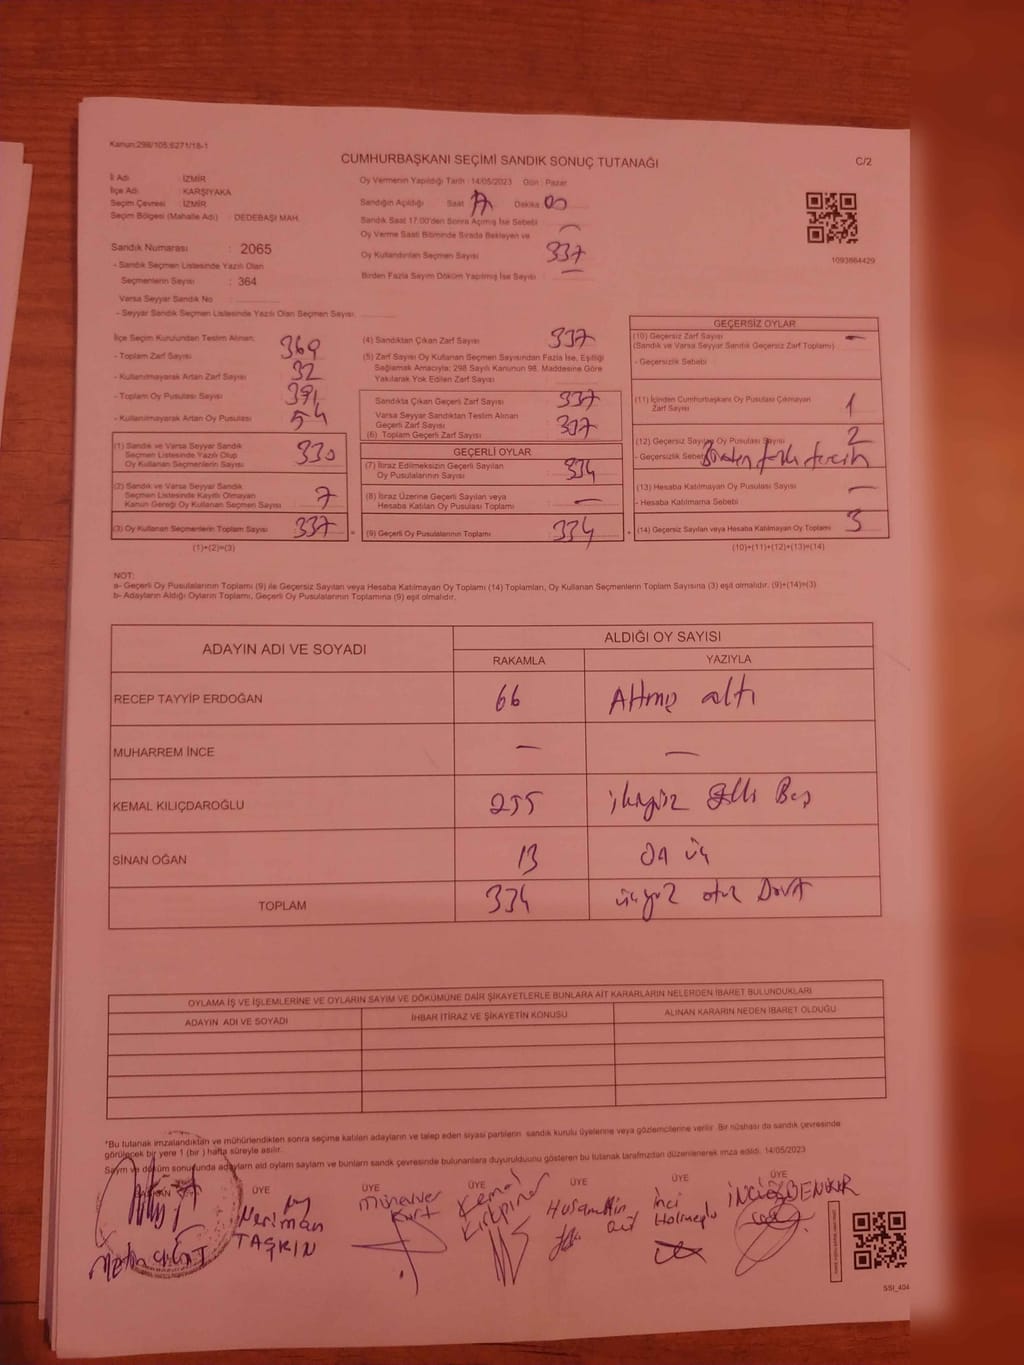 Kanun:298/105;6271/18-1
CUMHURBAŞKANI SEÇİMİ SANDIK SONUÇ TUTANAĞI
C/2
İl Adı : İZMİR
İlçe Adı : KARŞIYAKA
Seçim Çevresi : İZMİR
Seçim Bölgesi (Mahalle Adı) : DEDEBAŞI MAH.
Sandık Numarası : 2065
- Sandık Seçmen Listesinde Yazılı Olan
Seçmenlerin Sayısı : 364
Varsa Seyyar Sandık No
- Seyyar Sandık Seçmen Listesinde Yazılı Olan Seçmen Sayısı
Oy Vermenin Yapıldığı Tarih : 14/05/2023 Gün : Pazar
Sandığın Açıldığı Saat Dakika 00
Sandık Saat 17.00'den Sonra Açılmış İse Sebebi
Oy Verme Saati Bitiminde Sırada Bekleyen ve
Oy Kullandırılan Seçmen Sayısı 337
Birden Fazla Sayım Döküm Yapılmış İse Sayısı —
1093864429
İlçe Seçim Kurulundan Teslim Alınan;
- Toplam Zarf Sayısı 369
- Kullanılmayarak Artan Zarf Sayısı 32
- Toplam Oy Pusulası Sayısı 391
- Kullanılmayarak Artan Oy Pusulası 54
(1) Sandık ve Varsa Seyyar Sandık
Seçmen Listesinde Yazılı Olup
Oy Kullanan Seçmenlerin Sayısı 330
(2) Sandık ve Varsa Seyyar Sandık
Seçmen Listesinde Kayıtlı Olmayan
Kanun Gereği Oy Kullanan Seçmen Sayısı 7
(3) Oy Kullanan Seçmenlerin Toplam Sayısı 337
(1)+(2)=(3)
(4) Sandıktan Çıkan Zarf Sayısı 337
(5) Zarf Sayısı Oy Kullanan Seçmen Sayısından Fazla İse, Eşitliği
Sağlamak Amacıyla; 298 Sayılı Kanunun 98. Maddesine Göre
Yakılarak Yok Edilen Zarf Sayısı
Sandıkta Çıkan Geçerli Zarf Sayısı 337
Varsa Seyyar Sandıktan Teslim Alınan
Geçerli Zarf Sayısı
(6) Toplam Geçerli Zarf Sayısı 337
GEÇERLİ OYLAR
(7) İtiraz Edilmeksizin Geçerli Sayılan
Oy Pusulalarının Sayısı 334
(8) İtiraz Üzerine Geçerli Sayılan veya
Hesaba Katılan Oy Pusulası Toplamı —
(9) Geçerli Oy Pusulalarının Toplamı 334
GEÇERSİZ OYLAR
(10) Geçersiz Zarf Sayısı —
(Sandık ve Varsa Seyyar Sandık Geçersiz Zarf Toplamı)
- Geçersizlik Sebebi
(11) İçinden Cumhurbaşkanı Oy Pusulası Çıkmayan
Zarf Sayısı 1
(12) Geçersiz Sayılan Oy Pusulası Sayısı 2
- Geçersizlik Sebebi Birden fazla tercih
(13) Hesaba Katılmayan Oy Pusulası Sayısı —
- Hesaba Katılmama Sebebi
(14) Geçersiz Sayılan veya Hesaba Katılmayan Oy Toplamı 3
(10)+(11)+(12)+(13)=(14)
NOT:
a- Geçerli Oy Pusulalarının Toplamı (9) ile Geçersiz Sayılan veya Hesaba Katılmayan Oy Toplamı (14) Toplamları, Oy Kullanan Seçmenlerin Toplam Sayısına (3) eşit olmalıdır. (9)+(14)=(3)
b- Adayların Aldığı Oyların Toplamı, Geçerli Oy Pusulalarının Toplamına (9) eşit olmalıdır.
ADAYIN ADI VE SOYADI
ALDIĞI OY SAYISI
RAKAMLA YAZIYLA
RECEP TAYYİP ERDOĞAN 66 Altmış altı
MUHARREM İNCE — —
KEMAL KILIÇDAROĞLU 255 ikiyüz Elli Beş
SİNAN OĞAN 13 On üç
TOPLAM 334 üçyüz otuz Dört
OYLAMA İŞ VE İŞLEMLERİNE VE OYLARIN SAYIM VE DÖKÜMÜNE DAİR ŞİKAYETLERLE BUNLARA AİT KARARLARIN NELERDEN İBARET BULUNDUKLARI
ADAYIN ADI VE SOYADI İHBAR İTİRAZ VE ŞİKAYETİN KONUSU ALINAN KARARIN NEDEN İBARET OLDUĞU
*Bu tutanak imzalandıktan ve mühürlendikten sonra seçime katılan adayların ve talep eden siyasi partilerin sandık kurulu üyelerine veya gözlemcilerine verilir. Bir nüshası da sandık çevresinde
görülecek bir yere 1 (bir) hafta süreyle asılır.
Sayım ve döküm sonucunda adayların aldı oyların sayların ve bunların sandık çevresinde bulunanlara duyurulduunu gösteren bu tutanak tarafımızdan düzenlenerek imza edildi. 14/05/2023
BAŞKAN ÜYE ÜYE ÜYE ÜYE ÜYE ÜYE
Neriman TAŞKIN
Münevver Kurt
Kemal Kırkpınar
Husamettin
İnci
İNCİ ÖZBENKUR
SSI_404